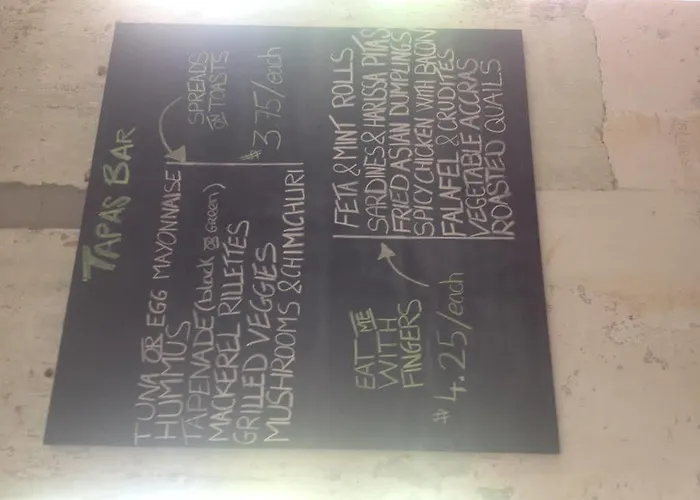 TAPAS BAR
TUNA OR EGG MAYONNAISE
HUMMUS
TAPENADE (black OR GREEN)
MACKEREL RILLETTES
GRILLED VEGGIES
MUSHROOMS & CHIMICHURI
SPREADS
ON TOASTS
$3.75/each
EAT ME
WITH
FINGERS
$4.25/each
FETA & MINT ROLLS
SARDINES & HARISSA PITAS
FRIED ASIAN DUMPLINGS
SPICY CHICKEN WITH BACON
FALAFEL & CRUDITES
VEGETABLE ACCRAS
ROASTED QUAILS